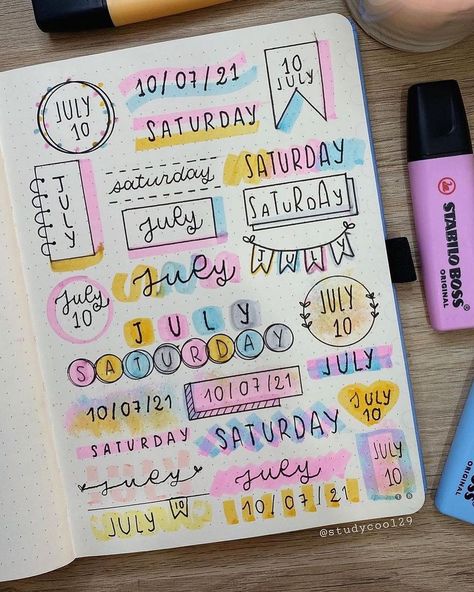 JULY
10
10/07/21
10
JULY
SATURDAY
saturday
SATURDAY
JULY
july
SATURDAY
JULY
July
10
July
JULY
10
JULY
SATURDAY
JULY
10/07/21
10/07/21
JULY
10
SATURDAY
SATURDAY
JULY
10
July
July
JULY 10
10/07/21
@studycool29
STABILO BOSS
ORIGINAL
ORIGINAL